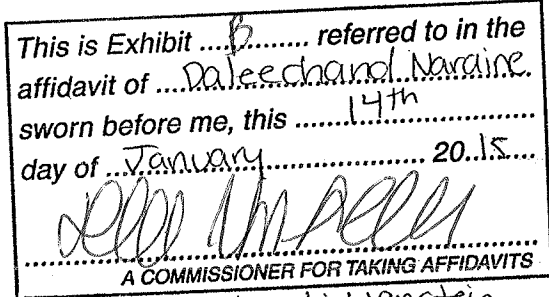 This is Exhibit ....B........ referred to in the
affidavit of ....Daleechand Naraine
sworn before me, this ........14th..............
day of ..January.................... 20..15...
A COMMISSIONER FOR TAKING AFFIDAVITS